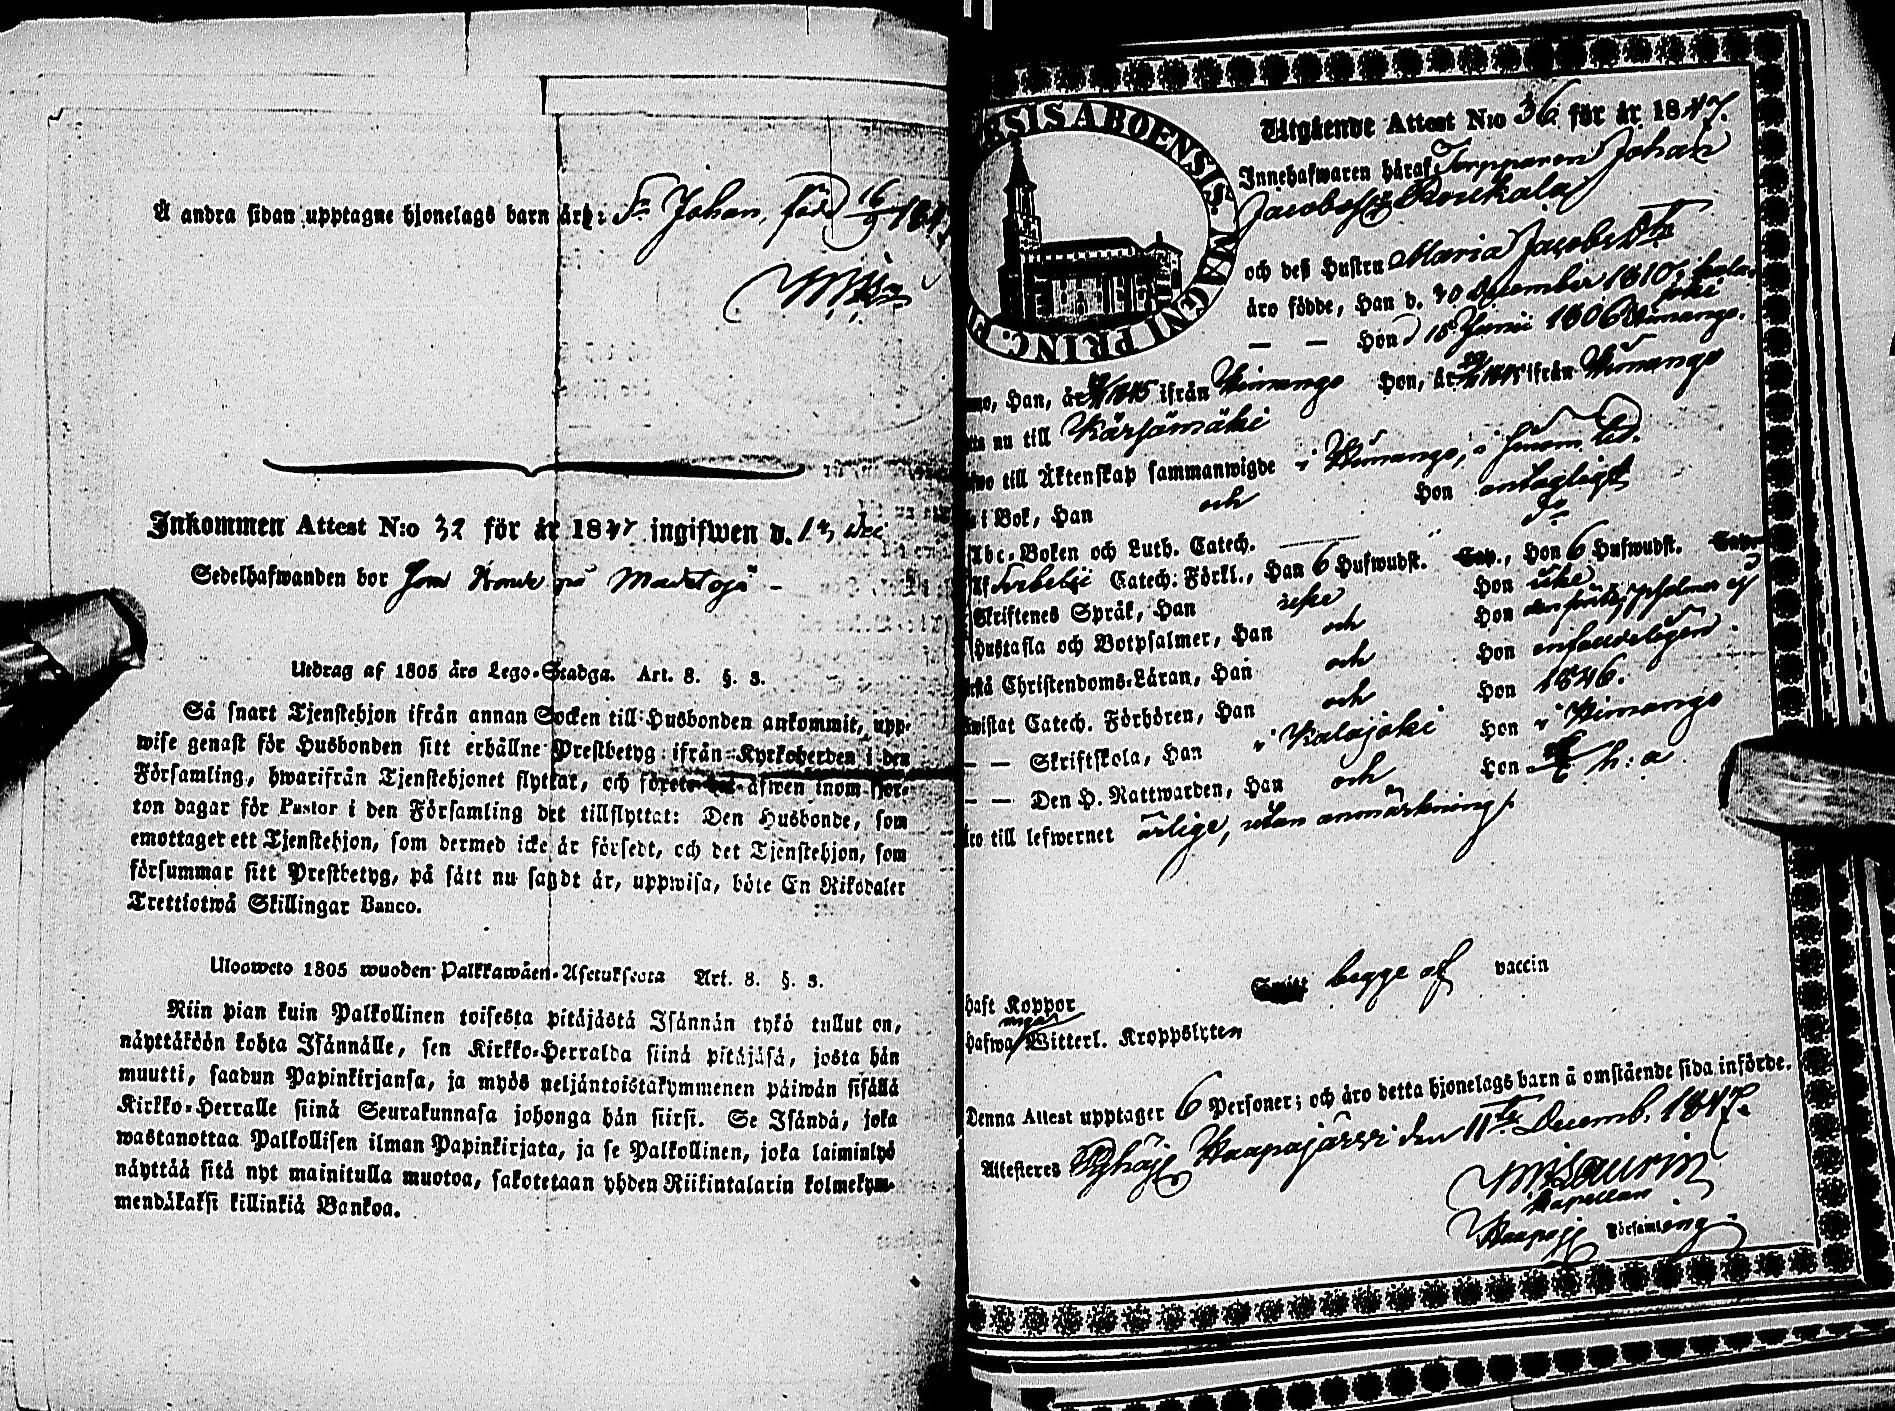 Å andra sidan upptagne hjonelags barn äro: Sn Johan, född 16/9 184
Inkommen Attest N:o 32 för år 1847 ingifwen d. 13 Dec
Sedelhafwanden bor
Utdrag af 1805 års Lego-Stadga. Art. 8. §. 3.
Så snart Tjenstehjon ifrån annan Socken till Husbonden ankommit, upp-
wise genast för Husbonden sitt erhållne Prestbetyg ifrån Kyrkoherden i den
Församling, hwarifrån Tjenstehjonet flyttat, och förete det äfwen inom fjor-
ton dagar för Pastor i den Församling det tillflyttat: Den Husbonde, som
emottager ett Tjenstehjon, som dermed icke är försedt, och det Tjenstehjon, som
försummar sitt Prestbetyg, på sätt nu sagdt är, uppwisa, böte En Riksdaler
Trettiotwå Skillingar Banco.
Ulosweto 1805 wuoden Palkkawäen-Asetuksesta Art. 8. §. 3.
Niin pian kuin Palkollinen toisesta pitäjästä Isännän tykö tullut on,
näyttäköön kohta Isännälle, sen Kirkko-Herralda siinä pitäjäsä, josta hän
muutti, saadun Papinkirjansa, ja myös neljäntoistakymmenen päiwän sisällä
Kirkko-Herralle siinä Seurakunnasa johonga hän siirsi. Se Isändä, joka
wastanottaa Palkollisen ilman Papinkirjata, ja se Palkollinen, joka laiminlyö
näyttää sitä nyt mainitulla muotoa, sakotetaan yhden Riikintalarin kolmekym-
mendäkaksi killinkiä Bankoa.
ENSIS ABOENSIS. MAGNI PRINC. F
Utgående Attest N:o 36 för år 1847.
Innehafwaren häraf Torpparen Johan
Jacobsson Roukala
och deß Hustru Maria Jacobs Dtr
äro födde, Han d. 20 December 1810, i Kala-
joki
— — Hon d 15 Junii 1806 Himango.
mo, Han, år 1845 ifrån Himango Hon, år 1845 ifrån Himango
nu till Kärsämäki
till Äktenskap sammanwigde i Himango,
i Bok, Han och Hon antagligt
Abc-Boken och Luth. Catech. Do
Af Catech. Förkl., Han 6 Hufwudst. Cap., Hon 6 Hufwudst. Cap.
Skriftenes Språk, Han icke Hon icke
Hustafla och Botpsalmer, Han och Hon
Christendoms-Läran, Han och Hon
wistat Catech. Förhören, Han och Hon 1846.
— — Skriftskola, Han i Kalajoki Hon i Himango
— — Den H. Nattwarden, Han och Hon h: a
äro till lefwernet ärlige, utan anmärkning
haft Koppor begge af vaccin
hafwa inga Witterl. Kroppslyten
Denna Attest upptager 6 Personer; och äro detta hjonelags barn å omstående sida införde.
Attesteres Pyhäj. Haapajärvi den 11te Decemb. 1847.
Kapellan
Haapaj. Församling